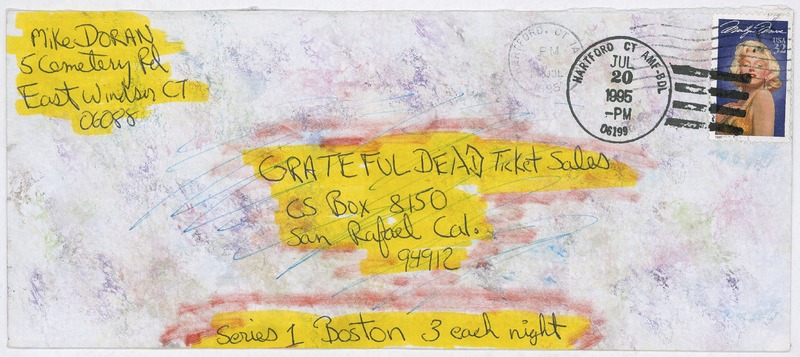 Mike DORAN
5 Cemetery Rd
East Windsor CT
06088
HARTFORD, CT
PM
1995
HARTFORD CT AMF-BDL
JUL
20
1995
-PM
06199
Marilyn Monroe
USA
32
GRATEFUL DEAD Ticket Sales
CS Box 8150
San Rafael Cal.
94912
Series 1 Boston 3 each night